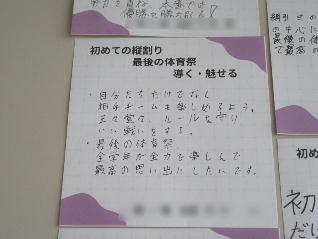 優勝で勝とう!
初めての縦割り
最後の体育祭
導く・魅せる
・自分たちだけでなく
相手チームも楽しめるよう。
正々堂々、ルールを守り
いい戦いをする。
・最後の体育祭
全学年が全力を楽しんで
最高の思い出にしたいです。
の中心に
最後の体
で最高の
初め
初
だけ